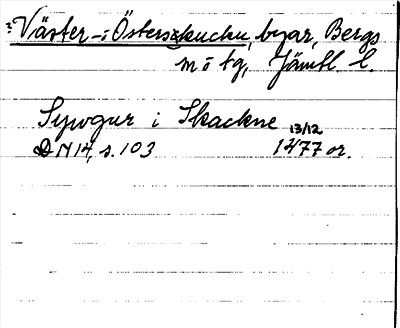 ? Väster- i Österskucku, byar, Bergs
m o tg, Jämtl. l.
Sywgur i Skackne 13/12
DN 14, s. 103 1477 or.